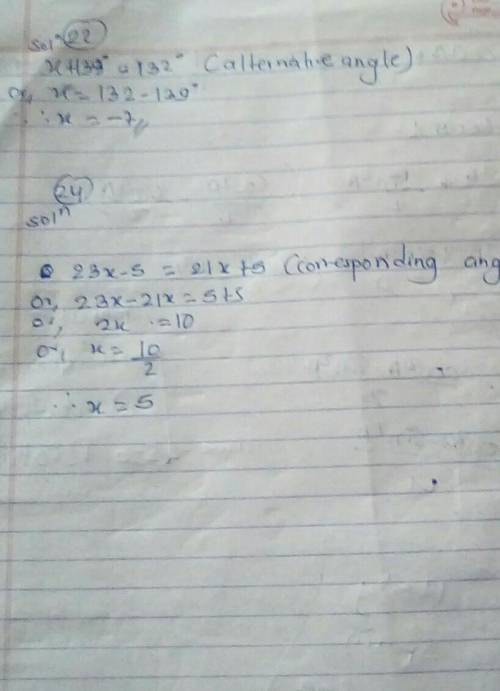 solⁿ (22)
x+139° = 132° (alternative angle)
or, x = 132 - 139°
∴ x = -7
(24)
solⁿ
23x-5 = 21x+5 (corresponding ang
or, 23x-21x = 5+5
or, 2x = 10
or, x = 10/2
∴ x = 5